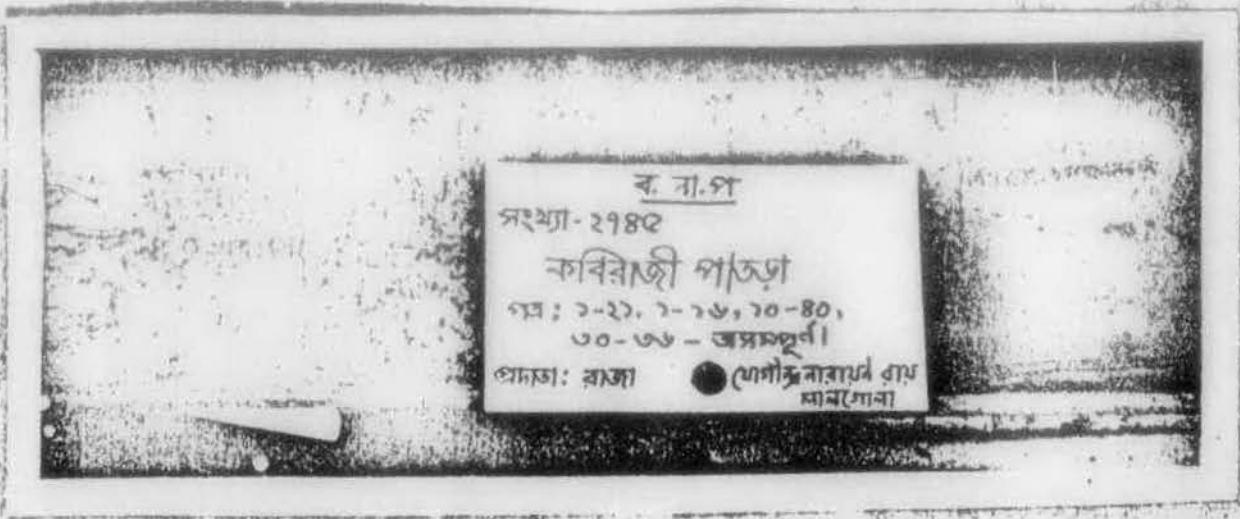 ব. সা. প
সংখ্যা - ২৭৪৫
কবিরাজী পাতড়া
পত্র : ১-২১, ১-১৬, ১০-৪০,
৩০-৩৬ - অসম্পূর্ণ।
প্রদাতা: রাজা যোগীন্দ্রনারায়ণ রায়
লালগোলা